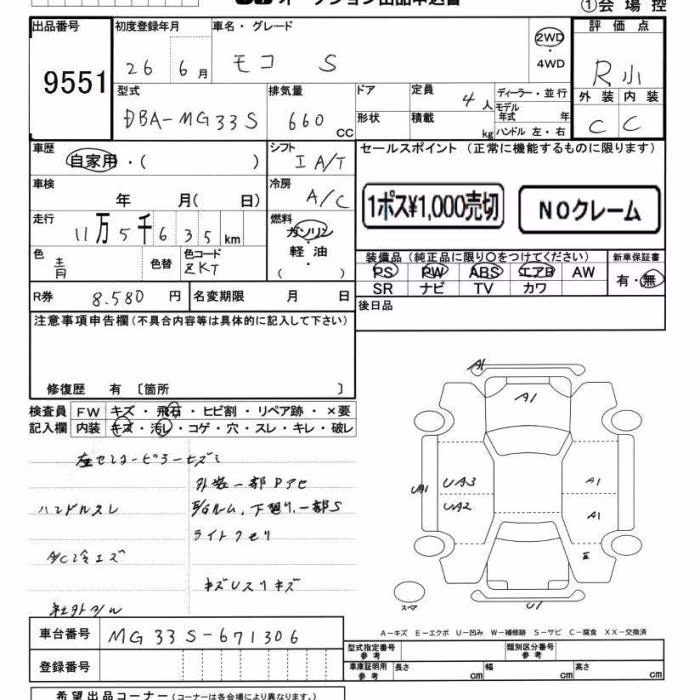 ①会場控
出品番号
9551
初度登録年月
26 6月
車名・グレード
モコ S
2WD
・
4WD
評価点
R小
外装 内装
C C
型式
DBA-MG33S
排気量
660 CC
ドア
形状
定員
4人
積載
kg
ディーラー・並行
モデル年式 年
ハンドル 左・右
車歴
自家用・( )
シフト
IA/T
セールスポイント (正常に機能するものに限ります)
車検
年 月( 日)
冷房
A/C
1ポス¥1,000売切
NOクレーム
走行
11万5千635km
燃料
ガソリン
・
軽・油
( ・ )
色
青
色替
色コード
ZKT
装備品 (純正品に限り〇をつけてください)
PS PW ABS エアB AW
SR ナビ TV カワ
新車保証書
有・無
R券 8.580円
名変期限 月 日
後日品
注意事項申告欄 (不具合内容等は具体的に記入して下さい)
修復歴 有 〔箇所 〕
検査員
記入欄
FW キズ・飛石・ヒビ割・リペア跡・×要
内装 キズ・汚レ・コゲ・穴・スレ・キレ・破レ
左センターピラーヒズミ
外装一部Pアセ
ハンドルスレ
E/Gルーム、下廻り、一部S
ライトクモリ
A/C冷エズ
キズUスリキズ
社外マフル
A1
A1
UA1
UA3
UA2
A1
A1
U1
スペア
A-キズ E-エクボ U-凹み W-補修跡 S-サビ C-腐食 XX-交換済
車台番号
MG33S-671306
登録番号
型式指定番号
参考
類別区分番号
参考
車庫証明用
参考
長さ cm
幅 cm
高さ cm
希望出品コーナー (コーナーは各会場により異なります。)